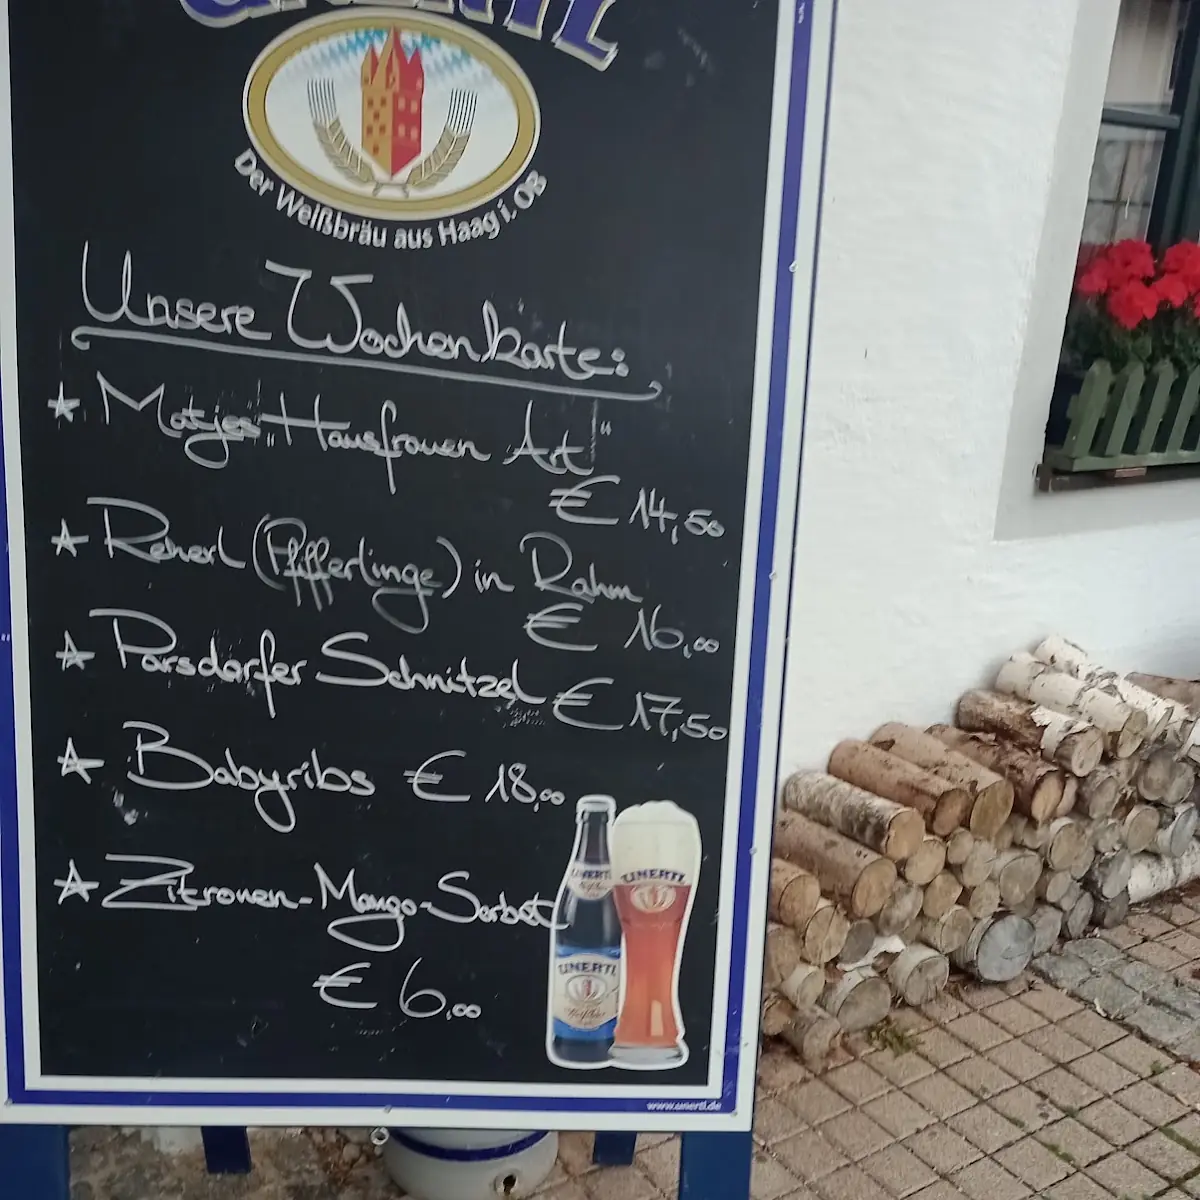 UNERTL
Der Weißbräu aus Haag i. OB
Unsere Wochenkarte:
Matjes „Hausfrauen Art"
€ 14,50
Reherl (Pfifferlinge) in Rahm
€ 16,00
Parsdorfer Schnitzel € 17,50
Babyribs € 18,00
Zitronen-Mango-Sorbet
€ 6,00
UNERTL
UNERTL
UNERTL
www.unertl.de